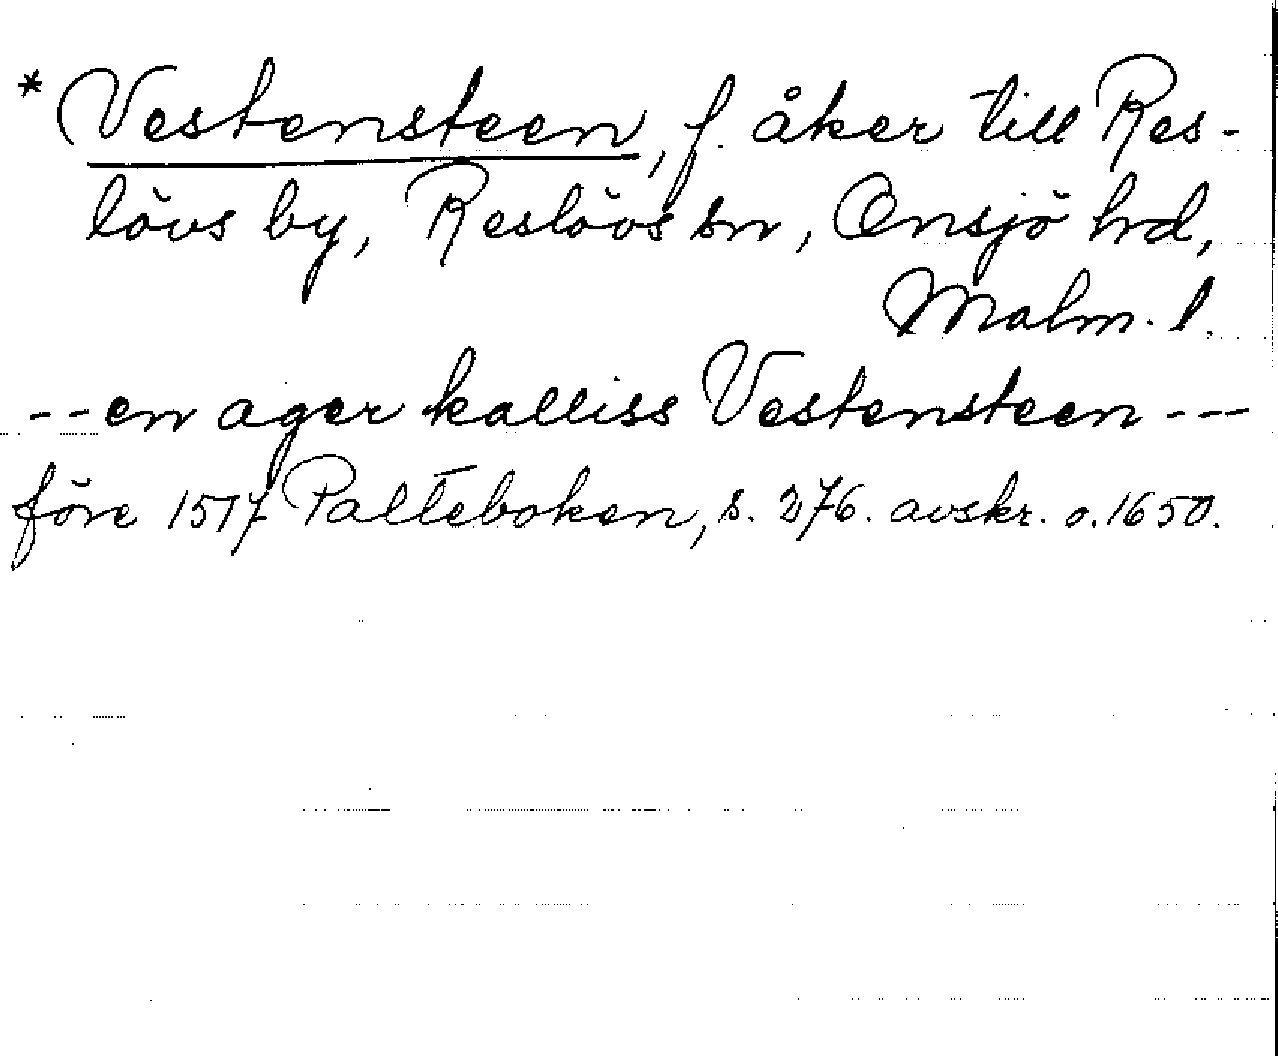 *Vestensteen, f. åker till Res-
lövs by, Reslövs sn, Onsjö hd,
Malm. l.
--en ager kalliss Vestensteen---
före 1517 Palteboken, s. 276. avskr. o. 1650.